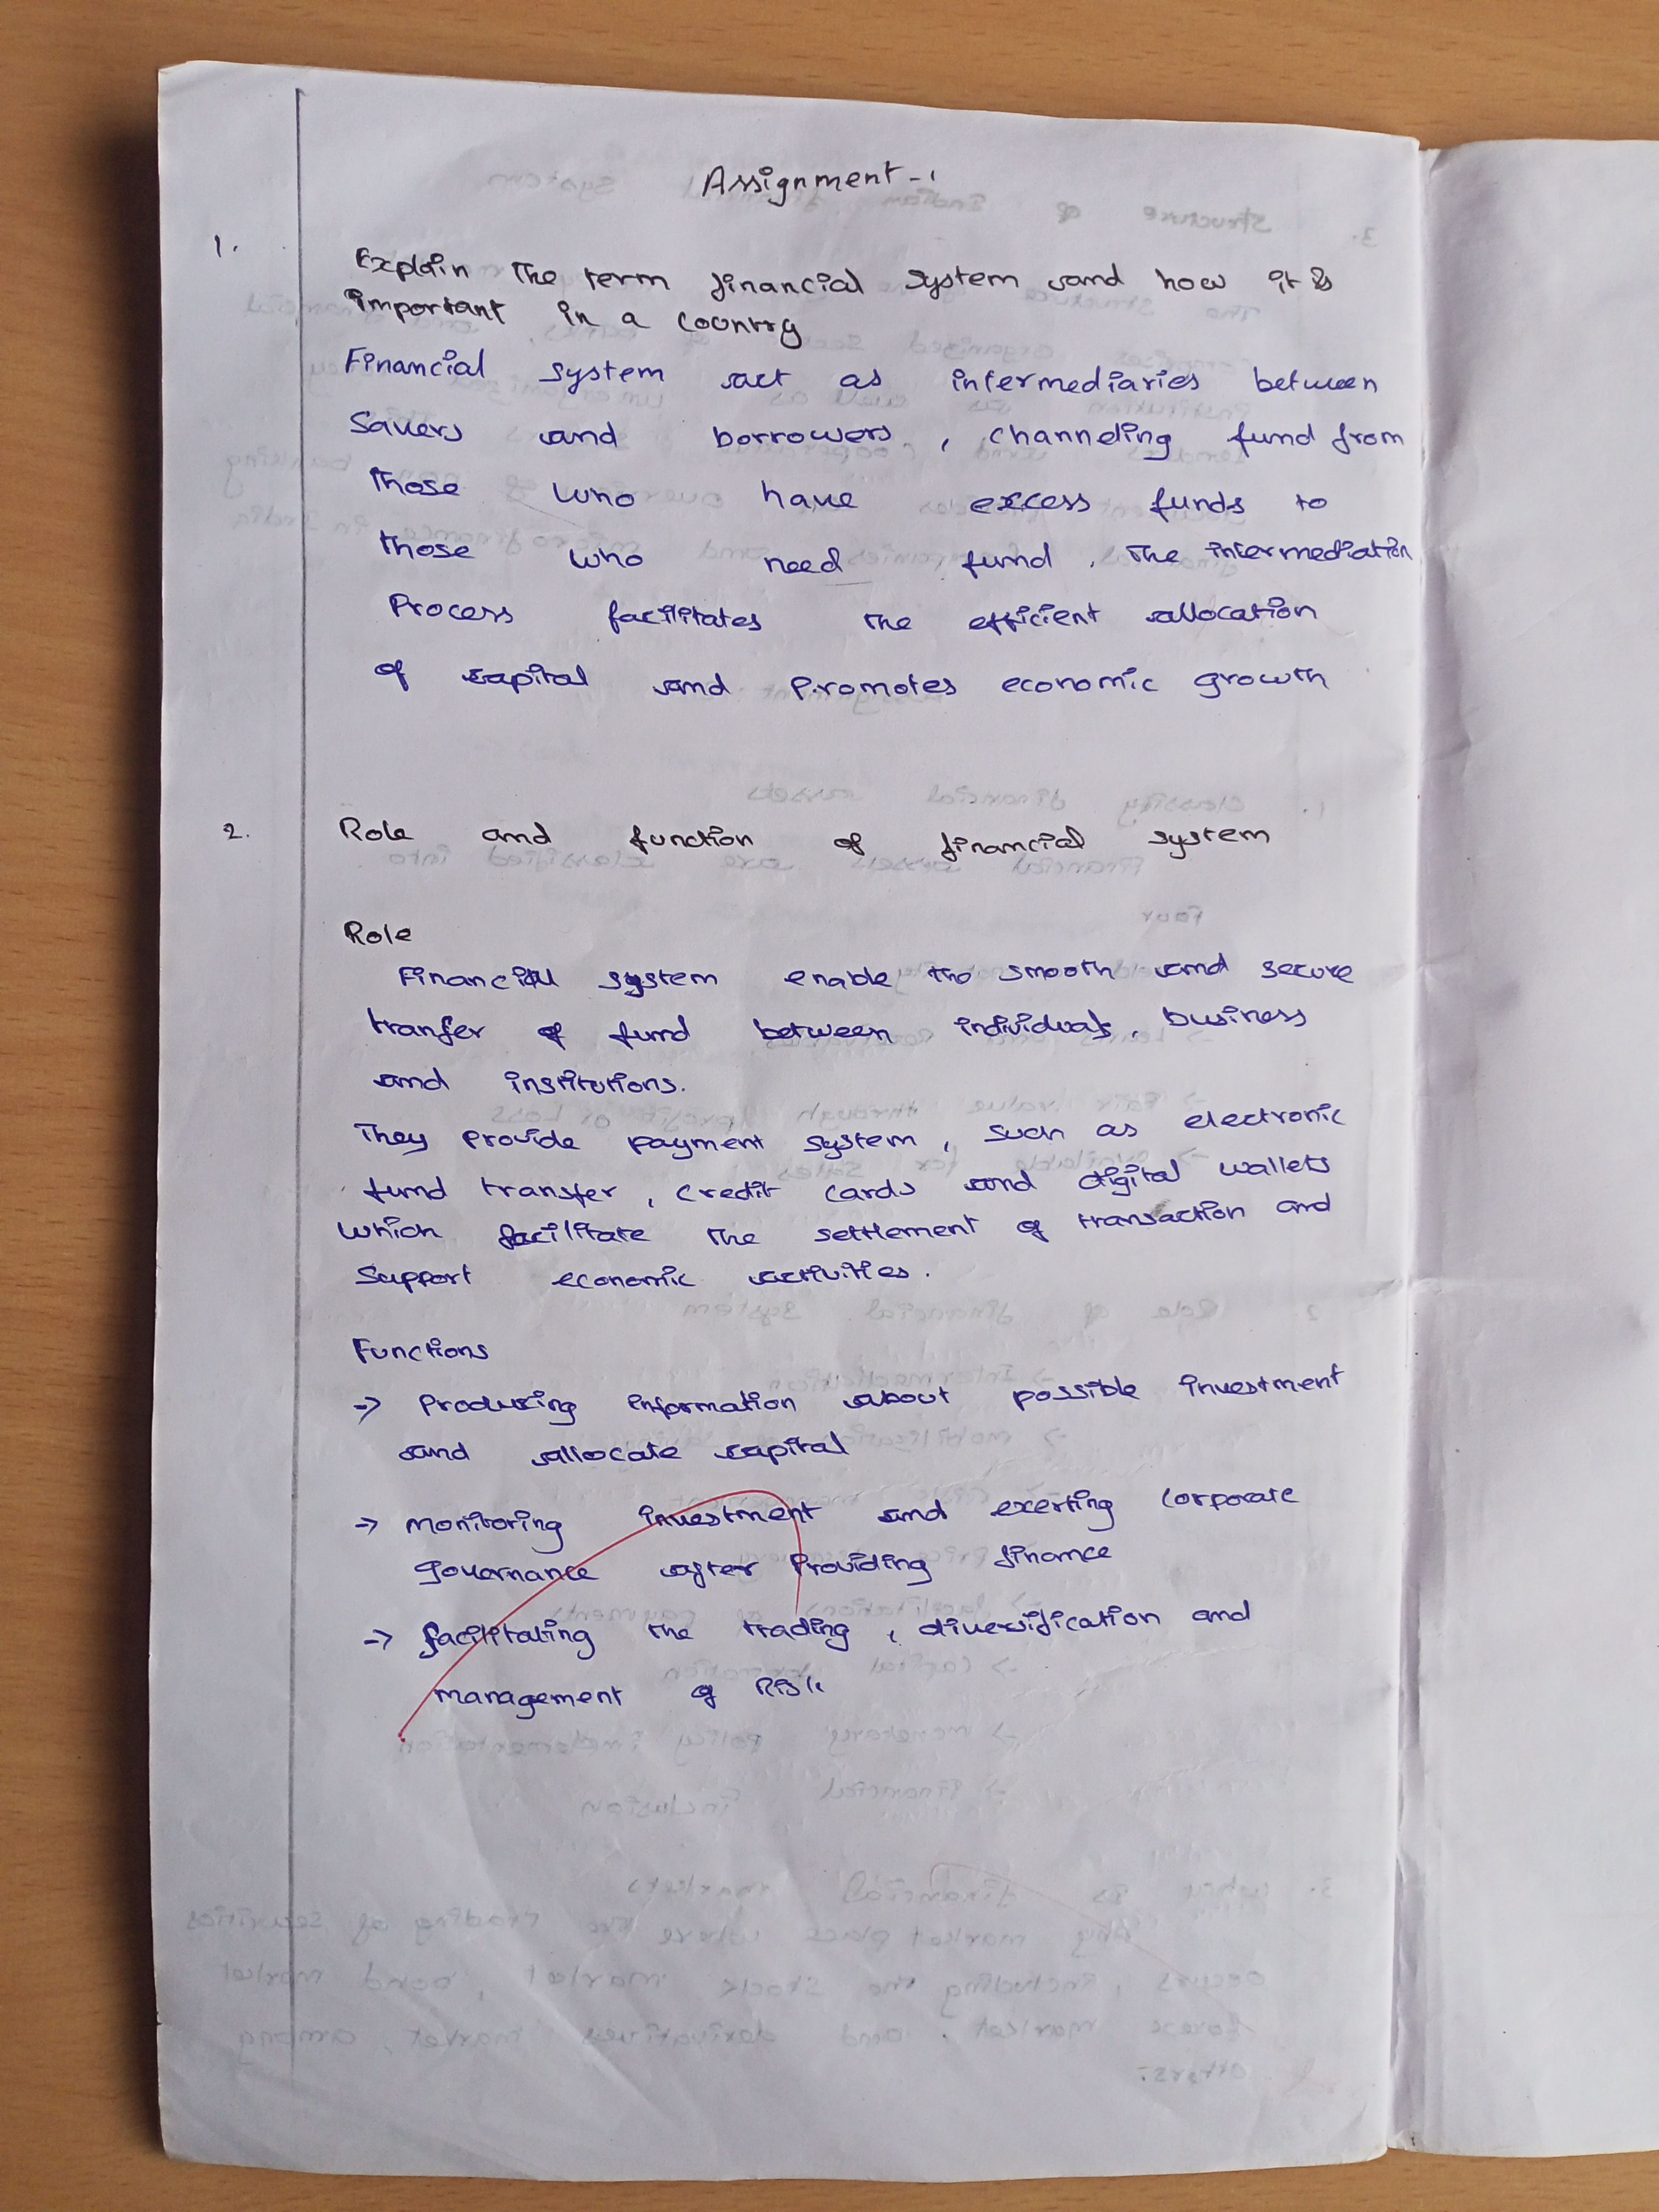 Assignment - 1
1.
Explain The term financial system and how it is
important in a country
Financial system act as intermediaries between
Savers and borrowers , channeling fund from
Those who have excess funds to
those who need fund . The intermediation
Process facilitates the efficient allocation
of capital and promotes economic growth
2. Role and function of financial system
Role
Financial system enable the smooth and secure
tranfer of fund between individuals, business
and institutions.
They provide payment system , such as electronic
fund transfer , credit cards and digital wallets
which facilitate the settlement of transaction and
Support economic activities .
Functions
→ Producing information about possible investment
and allocate capital
→ monitoring investment and exerting corporate
governance after Providing finance
→ facilitating the trading , diversification and
management of Risk